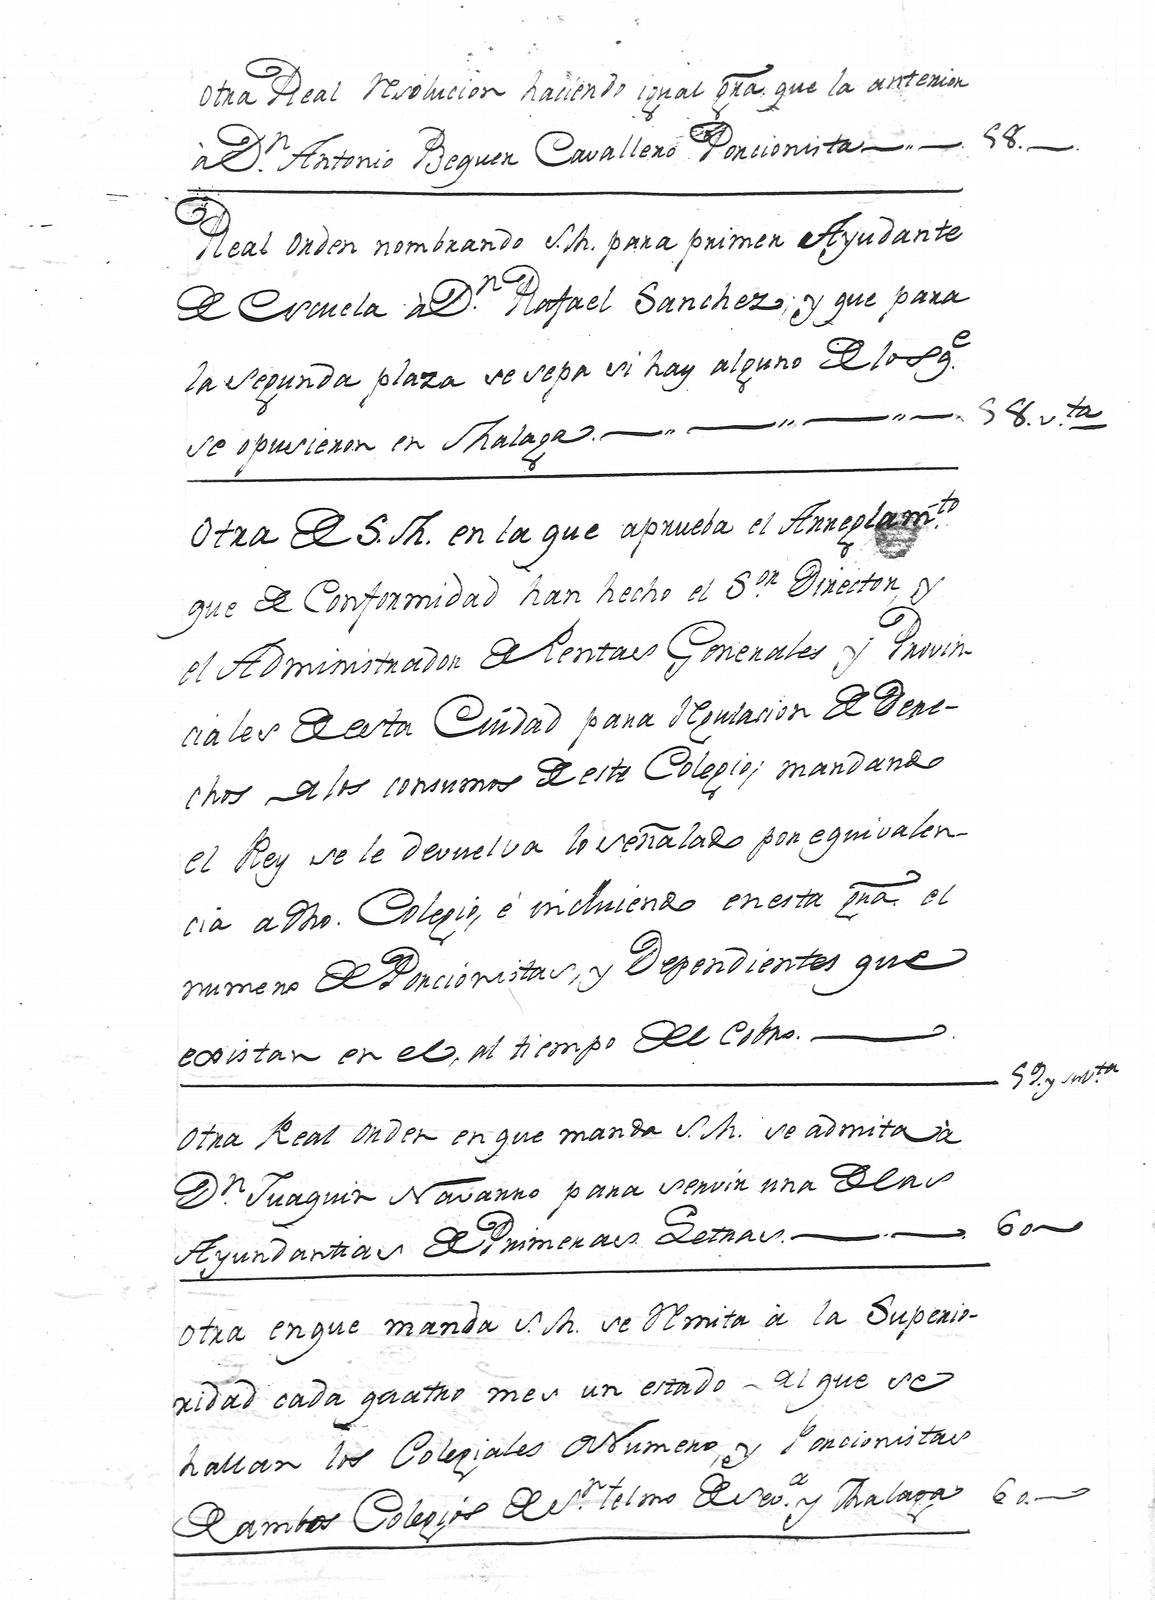 Otra Real resolucion haciendo igual gra. que la anterior
à Dn. Antonio Beguer Cavallero Porcionista 58.
Real Orden nombrando S.M. para primer Ayudante
de Escuela à Dn. Rafael Sanchez, y que para
la segunda plaza se sepa si hay alguno de los qe.
se opusieron en Malaga. 58. vta
Otra de S.M. en la que aprueba el Arreglamto.
que de Conformidad han hecho el Sor. Director, y
el Administrador de Rentas Generales y Provin-
ciales de esta Ciudad para regulacion de Dere-
chos a los consumos de este Colegio; mandando
el Rey se le devuelva lo señalado por equivalen-
cia a dho. Colegio, é incluiendo en esta gra. el
numero de Porcionistas, y Dependientes que
existan en el, al tiempo del Cobro.
59. y su vta
Otra Real Orden en que manda S.M. se admita à
Dn. Juaquin Navarro para servir una de las
Ayundantias de Primeras Letras. 60
Otra en que manda S.M. se remita à la Superio-
ridad cada quatro mes un estado al que se
hallan los Colegiales de Numero, y Porcionistas
de ambos Colegios de Sn. Telmo de Seva. y Malaga 60.